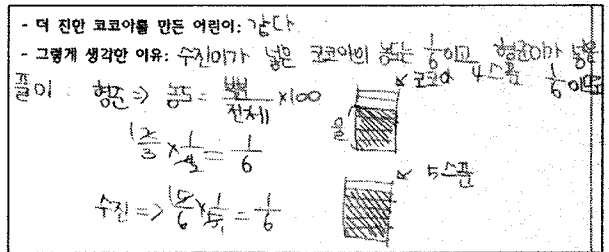 - 더 진한 코코아를 만든 어린이: 같다
- 그렇게 생각한 이유: 수진이가 넣은 코코아의 농도는 1/6이고 형준이가 넣은
1/6이다
풀이 형준 => 농도 = /전체 ×100
2/3 × 1/4 = 1/6
물
코코아 4스푼
수진 => 5/6 × 1/5 = 1/6
5스푼